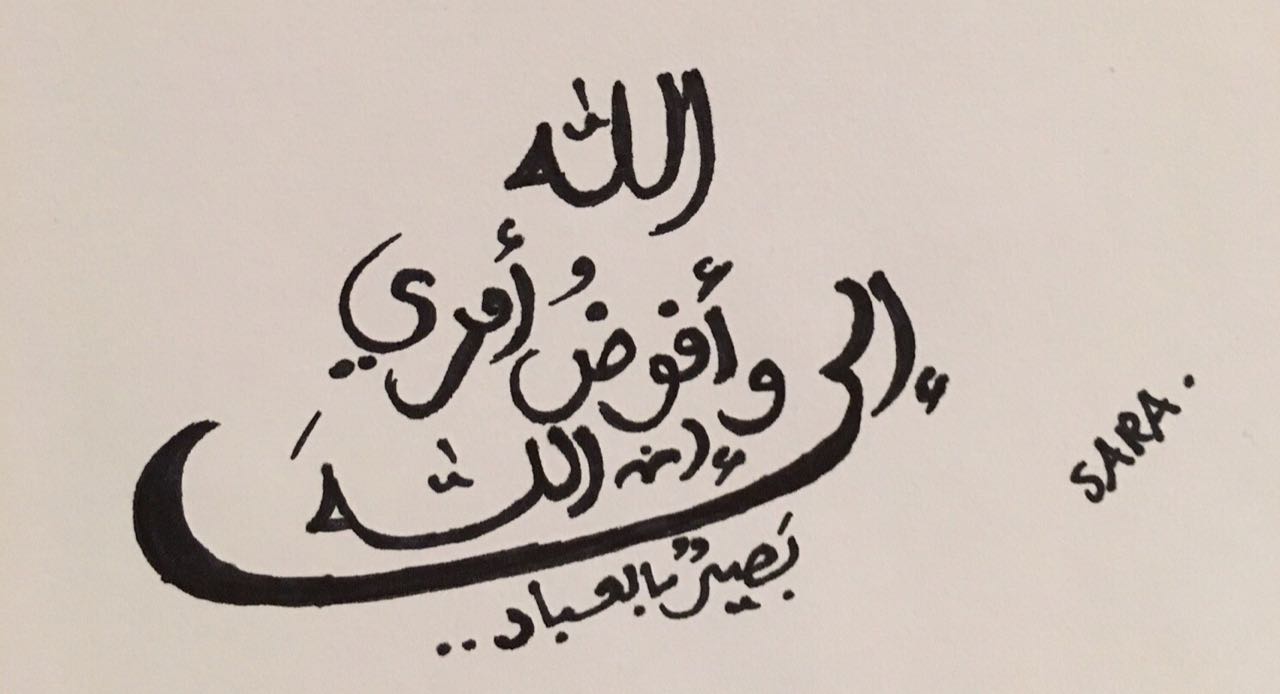 وأفوضُ أمري
إلى
اللّه
إن اللّهَ
بَصيرٌ بالعباد..
SARA.